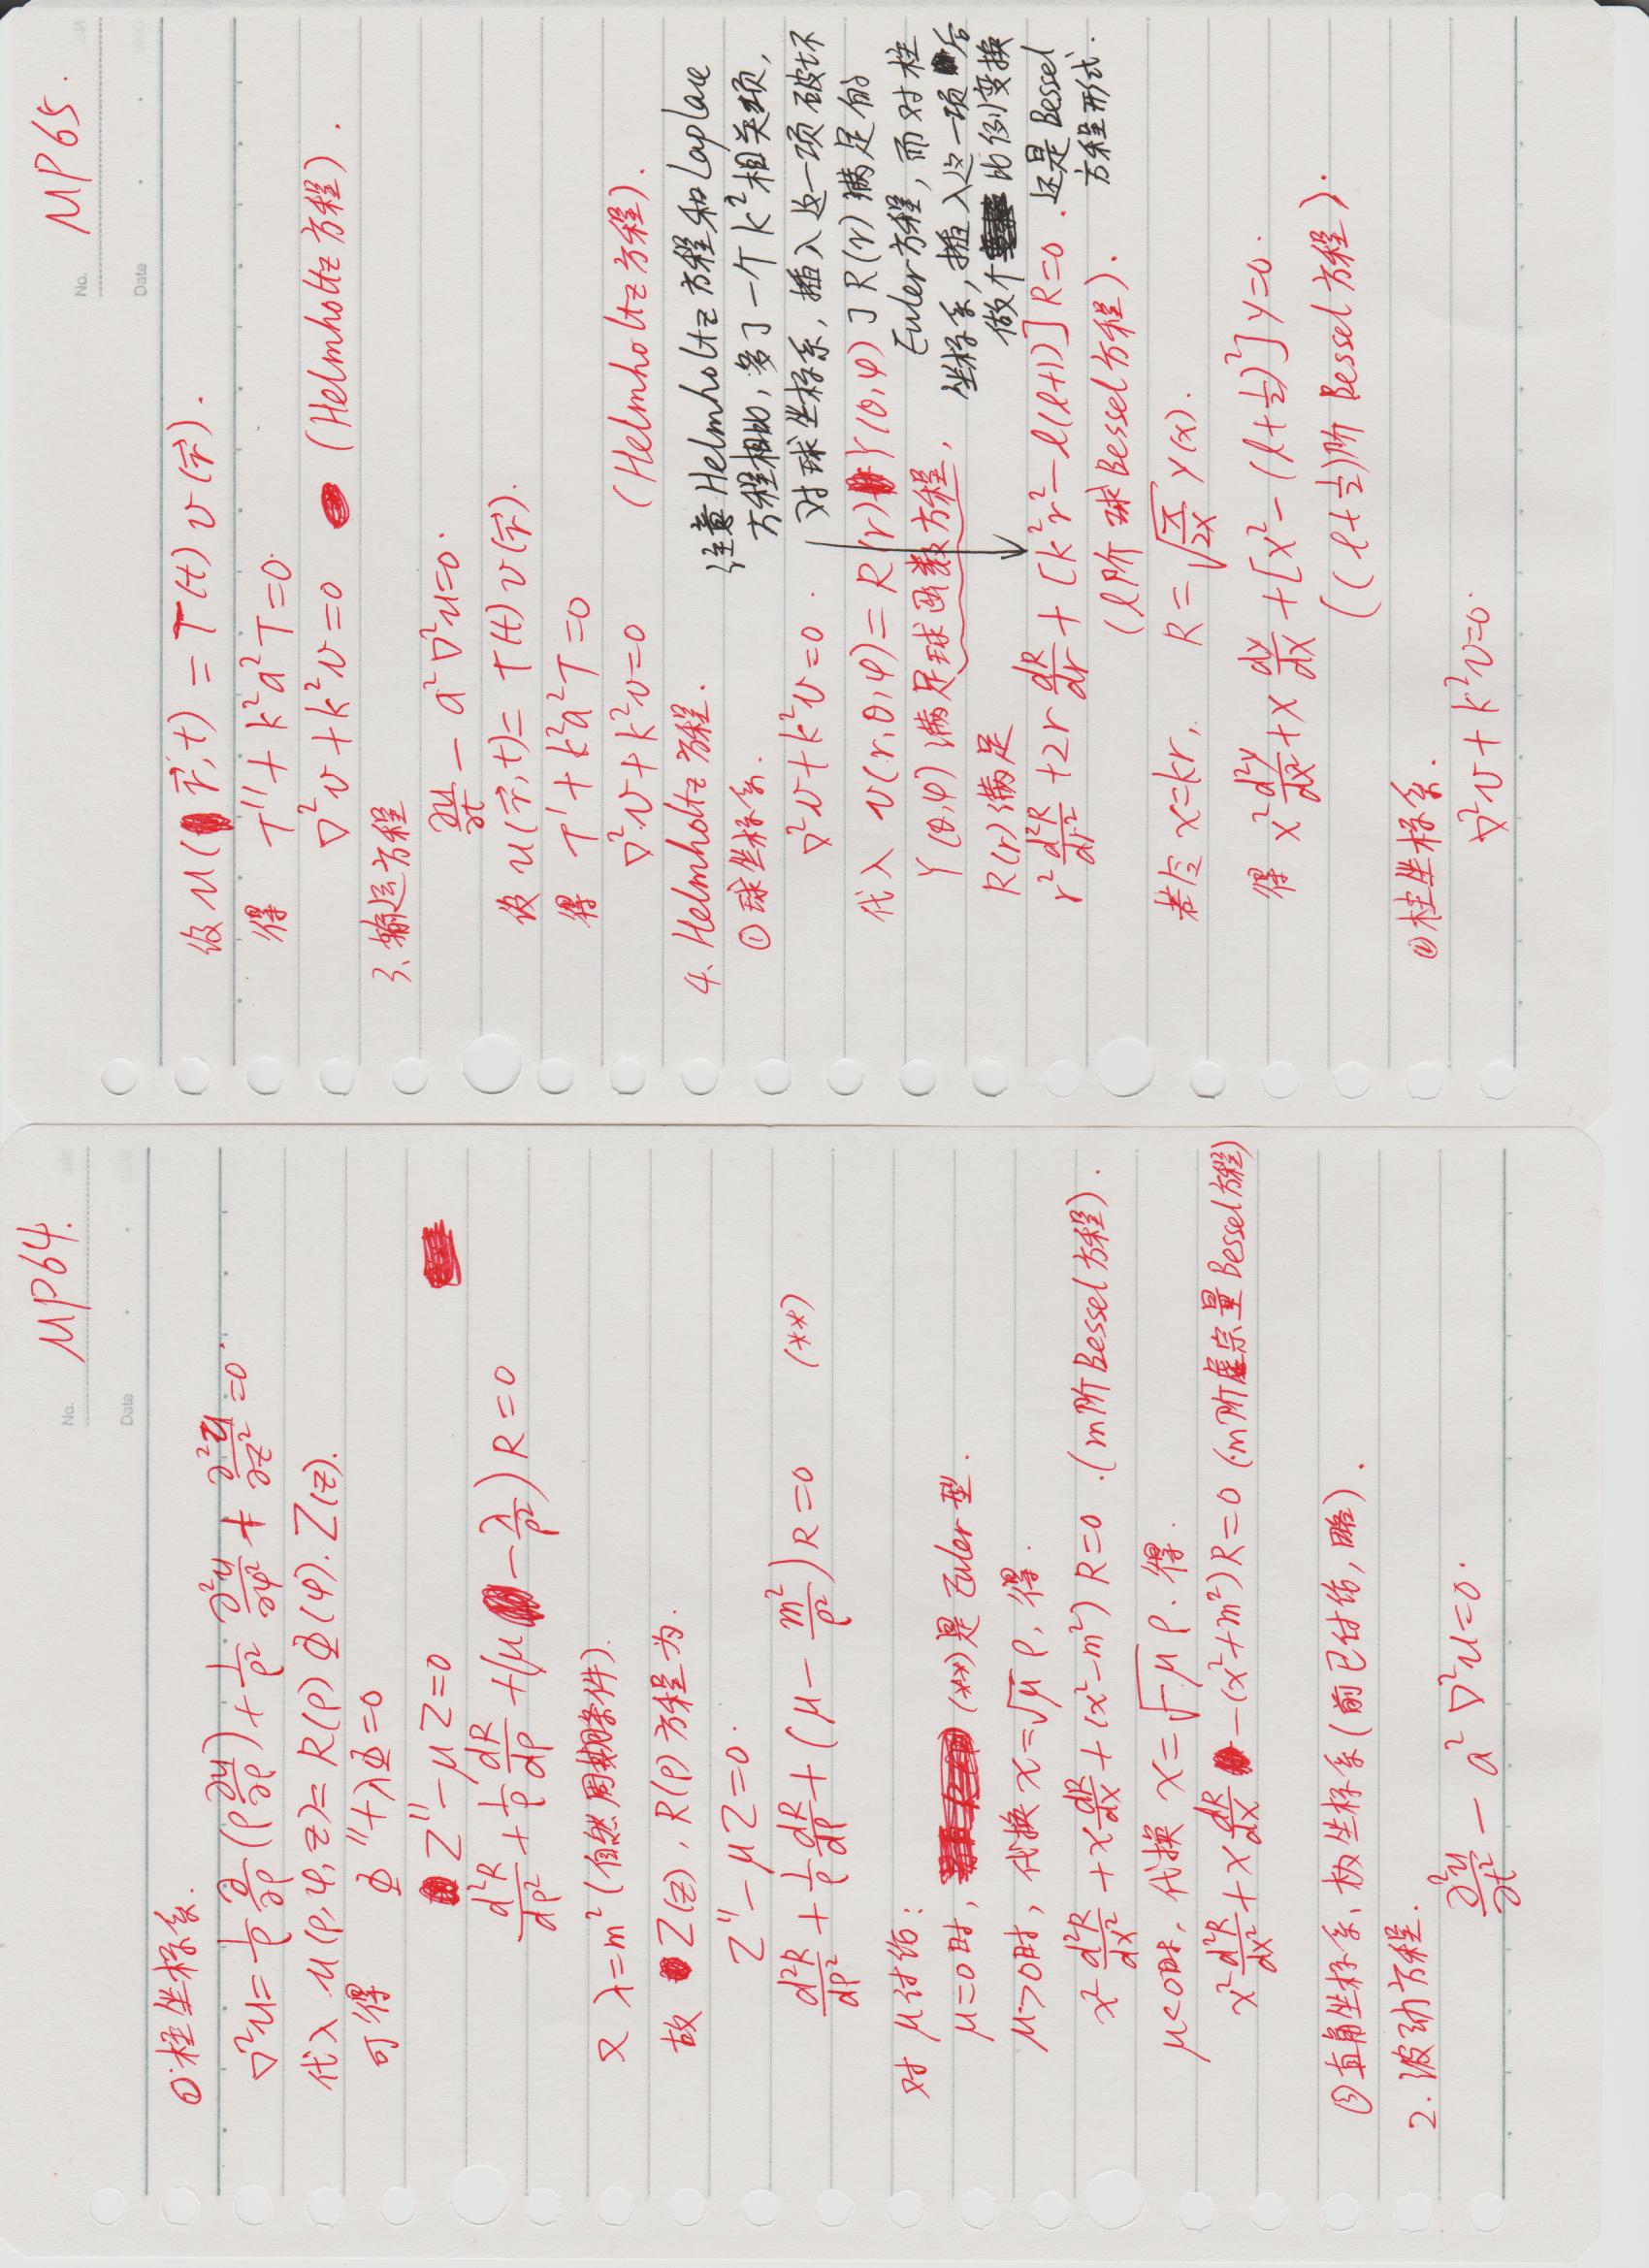 No. MP64.
Date
②柱坐标系.
∇²u = 1/ρ ∂/∂ρ (ρ ∂u/∂ρ) + 1/ρ² ∂²u/∂φ² + ∂²u/∂z² = 0.
代入 u(ρ,φ,z) = R(ρ) Φ(φ). Z(z).
可得 Φ″+λΦ=0
Z″-μZ=0
d²R/dρ² + 1/ρ dR/dρ + (μ - λ/ρ²) R = 0
又 λ=m² (自然周期条件).
故 Z(z), R(ρ) 方程为.
Z″-μZ=0.
d²R/dρ² + 1/ρ dR/dρ + (μ - m²/ρ²) R = 0 (**)
对 μ 讨论:
μ=0时, (**)是 Euler 型.
μ>0时, 代换 x=√μ ρ, 得.
x² d²R/dx² + x dR/dx + (x²-m²) R=0 .(m阶Bessel方程).
μ<0时, 代换 x=√-μ ρ. 得.
x² d²R/dx² + x dR/dx -(x²+m²)R=0 (m阶虚宗量Bessel方程)
③直角坐标系、极坐标系(前已讨论,略).
2. 波动方程.
∂²u/∂t² - a² ∇²u=0.
No. MP65.
Date
设 u(r⃗,t) = T(t) v(r⃗).
得 T″+k²a²T=0.
∇²v+k²v=0 (Helmholtz方程).
3、输运方程
∂u/∂t - a²∇²u=0.
设 u(r⃗,t)= T(t) v(r⃗).
得 T′+k²a²T=0
∇²v+k²v=0 (Helmholtz方程).
4、Helmholtz方程.
①球坐标系.
∇²v+k²v=0.
代入 v(r,θ,φ)= R(r) Y(θ,φ)
Y(θ,φ) 满足球函数方程,
R(r)满足
r² d²R/dr² + 2r dR/dr + [k²r²-l(l+1)]R=0.
(l阶 球Bessel方程).
注意Helmholtz方程和Laplace
方程相比, 多了一个k²相关项,
对球坐标系, 插入这一项破坏
了R(r)满足的
Euler方程, 而对柱
坐标系, 插入这一项后
做个比例变换
还是Bessel
方程形式.
若令 x=kr, R=√(π/2x) y(x).
得 x² d²y/dx² + x dy/dx + [x²-(l+1/2)²]y=0.
((l+1/2)阶 Bessel方程).
②柱坐标系.
∇²v+k²v=0.